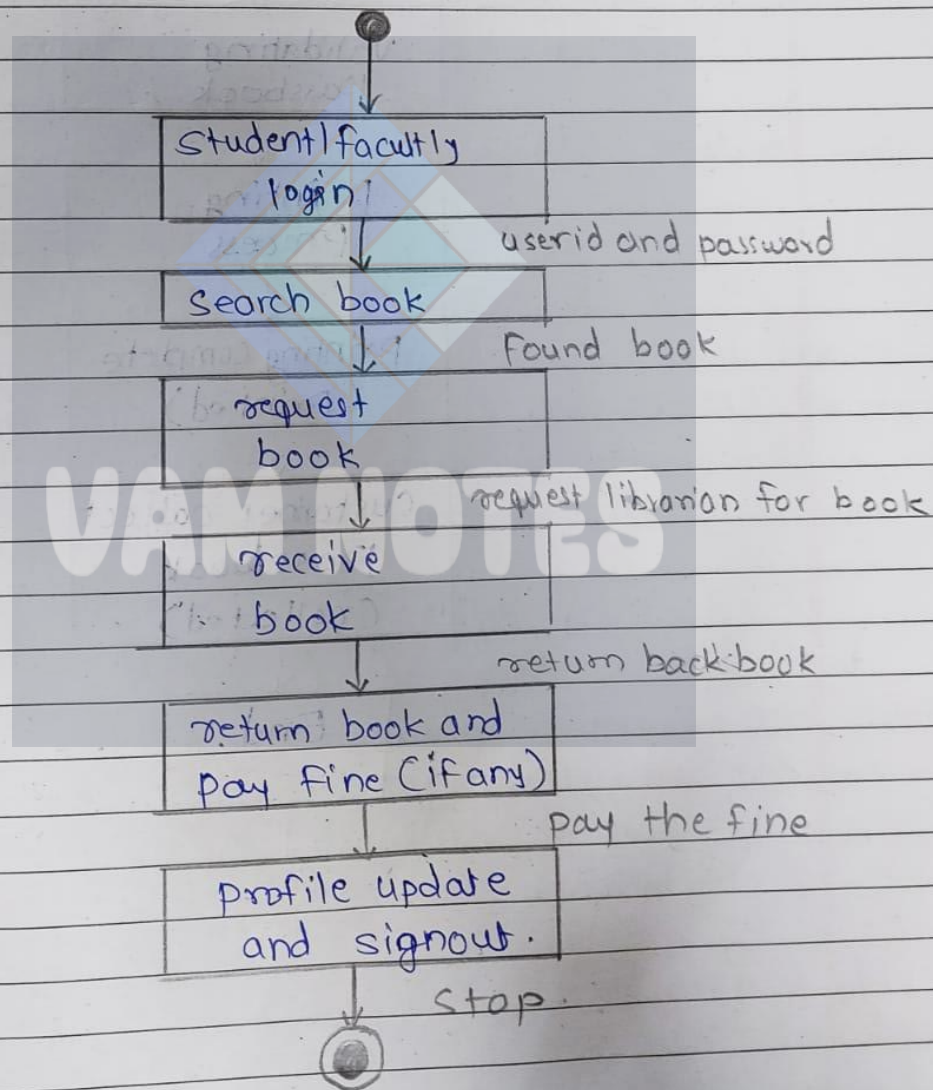 student/facultly
login
userid and password
search book
Found book
request
book
request librarian for book
receive
book
return back book
return book and
pay fine (if any)
pay the fine
profile update
and signout.
Stop.
VAM NOTES